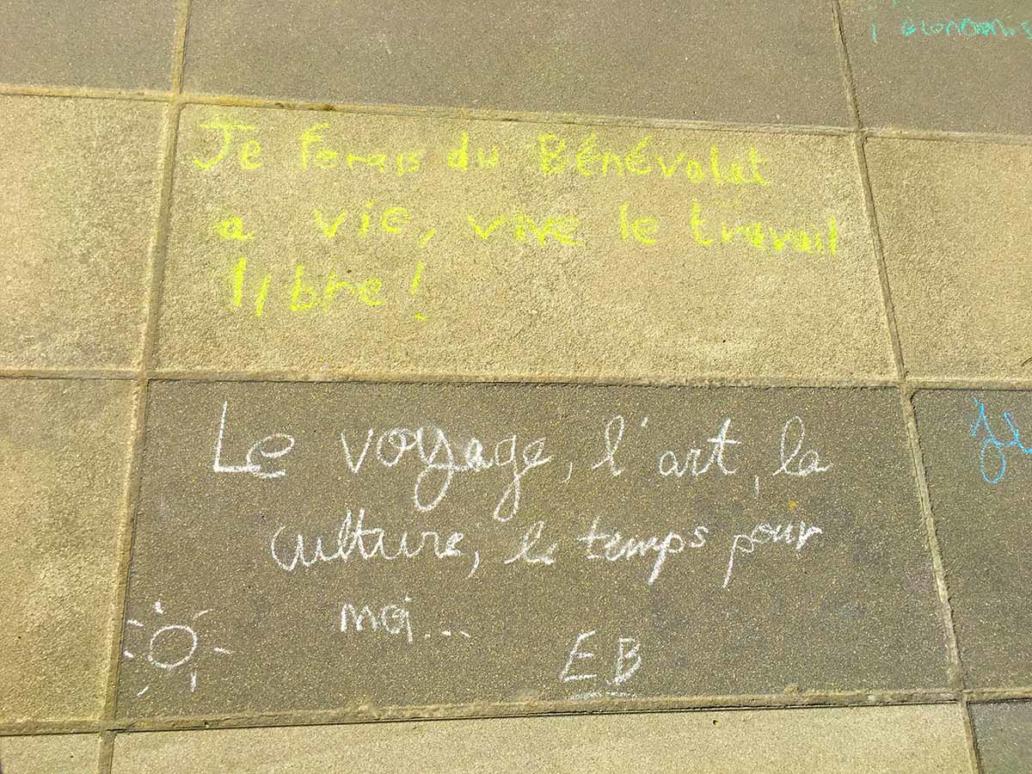 Je Ferais du Bénévolat
a vie, vive le travail
libre!
Le voyage, l'art, la
culture, le temps pour
moi...
EB